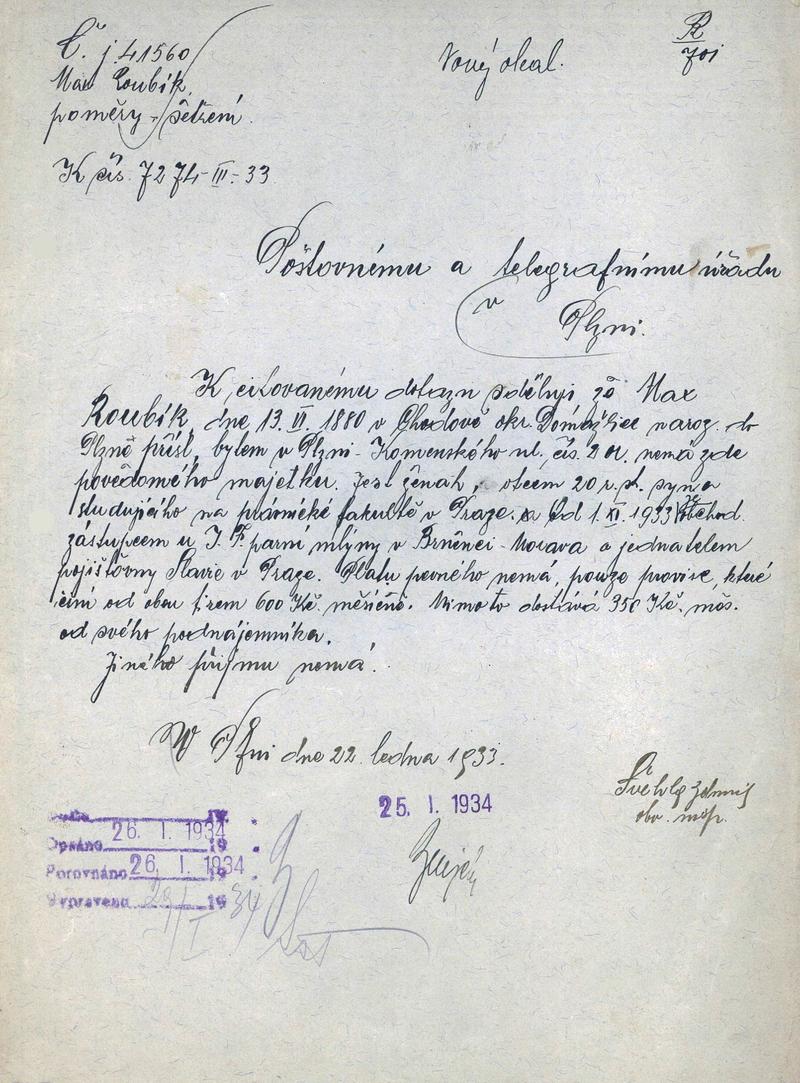 Č. j. 41560
Max Roubík,
poměry - šetření.
K čís. 7274-III-33
Nový okal.
R
701
Poštovnímu a telegrafnímu úřadu
v
Plzni.
K citovanému dotazu sděluji, že Max
Roubík, dne 13. VI. 1880 v Chodové okr. Domažlice naroz. do
Plzně přísl., bytem v Plzni - Komenského ul. čís. 2 nemá zde
povědomého majetku. Jest ženat, otcem 20 r. st. syna
studujícího na právnické fakultě v Praze. Od 1. XI. 1933 obchod.
zástupcem u J. F. parní mlýny v Brněnci - Morava a jednatelem
pojišťovny Slavie v Praze. Platu pevného nemá, pouze provise, které
činí od obou firem 600 Kč. měsíčně. Mimo to dostává 350 Kč. měs.
od svého podnájemníka.
Jiného příjmu nemá.
V Plzni dne 22. ledna 1933.
25. I. 1934
26. I. 1934
Opsáno 19
Porovnáno 26. I. 1934
Vypraveno 29/I 34 19